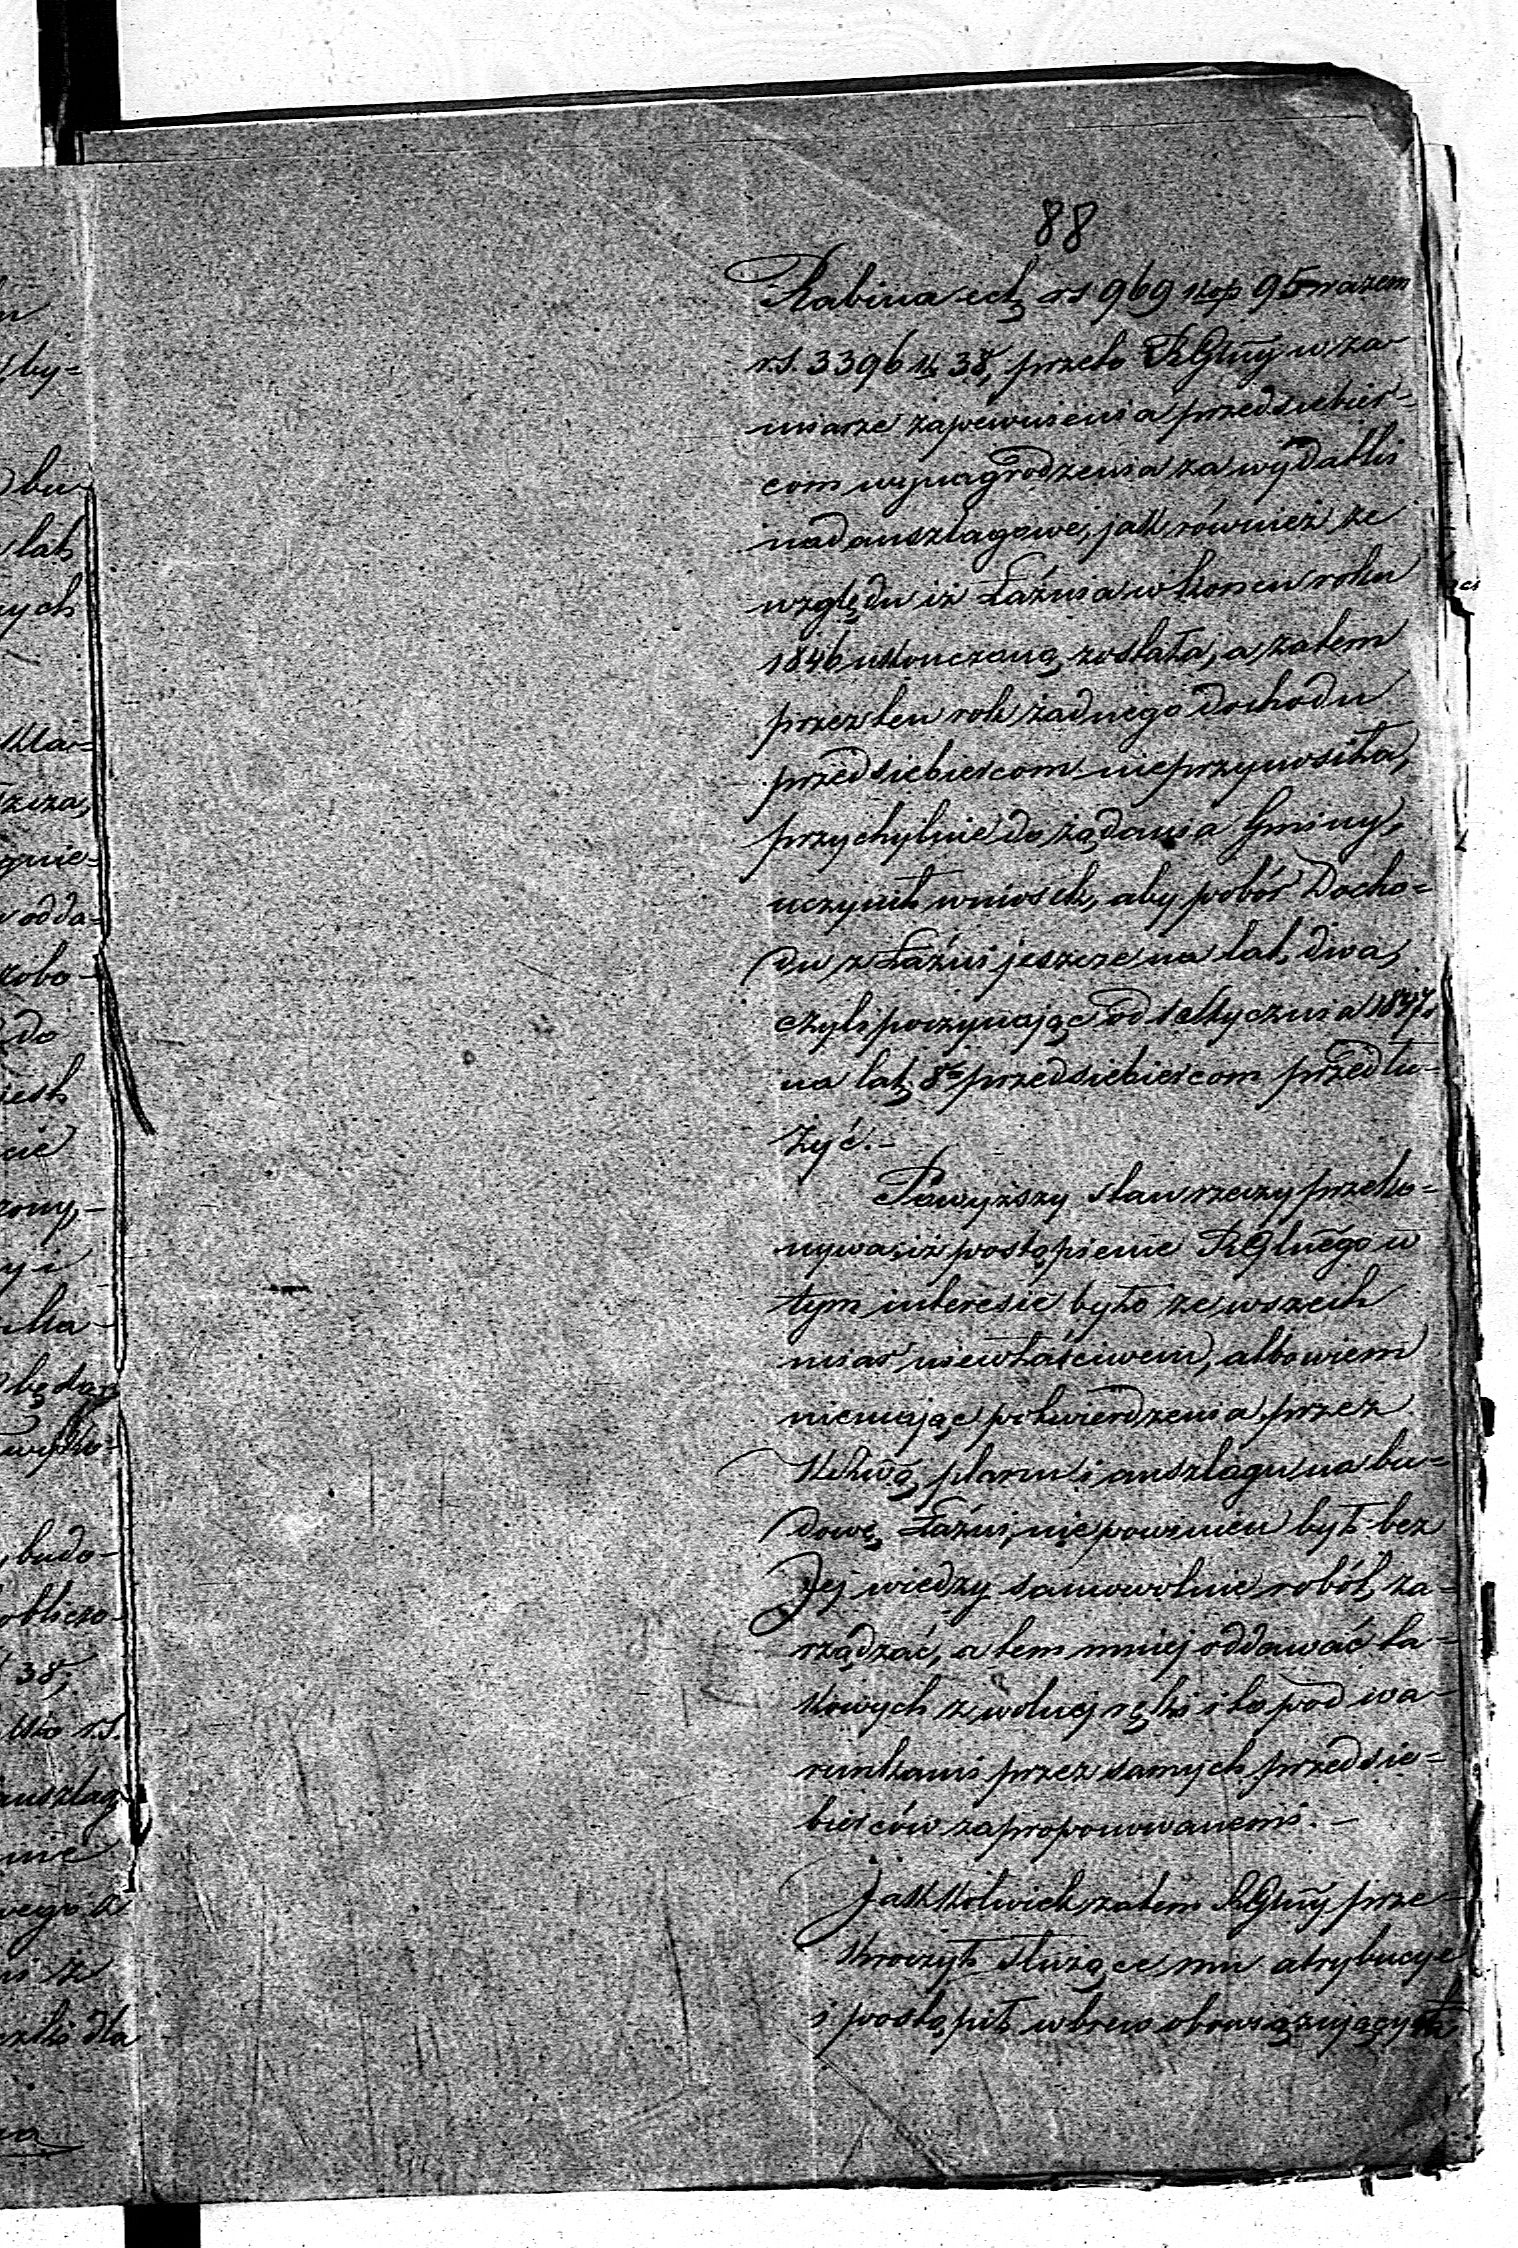 88
Rabina etc rs 969 kop 95 razem
rs. 3396 k 38, przeto RGlny w za-
miarze zapewnienia przedsiebier-
com wynagrodzenia za wydatki
nadanszlagowe, jak również ze
względu iż Łaźnia w koncu roku
1846 ukonczoną została, a zatem
przez ten rok żadnego dochodu
przedsiebiercom nieprzynosiła,
przychylnie do żądania Gminy,
uczynił wniosek, aby pobór Docho-
du z Łaźni jeszcze na lat dwa,
czyli poczynając od 1 Stycznia 1847 r
na lat 8m przedsiebiercom przedłu-
żyć.-
Powyższy stan rzeczy przeko-
nywa, iż postąpienie RGlnego w
tym interesie było ze wszech
miar niewłaściwem, albowiem
niemając potwierdzenia przez
planu i anszlagu na bu-
dowę Łaźni, nie powinien był bez
Jej wiedzy samowolnie robót za-
rządzać, a tem mniej oddawać ta-
kowych z wolnej ręki i to pod wa-
runkami przez samych przedsie-
bierców zaproponowanemi.-
Jakkolwiek zatem RGlny prze-
kroczył służące mu atrybucye
i postąpił wbrew obowiązujących
by-
bu-
lat
ych
kla-
odda-
robo-
do
jest
cie
y i
będą
budo-
obliczo-
38,
rs.
anszlag
nie
wego
dla